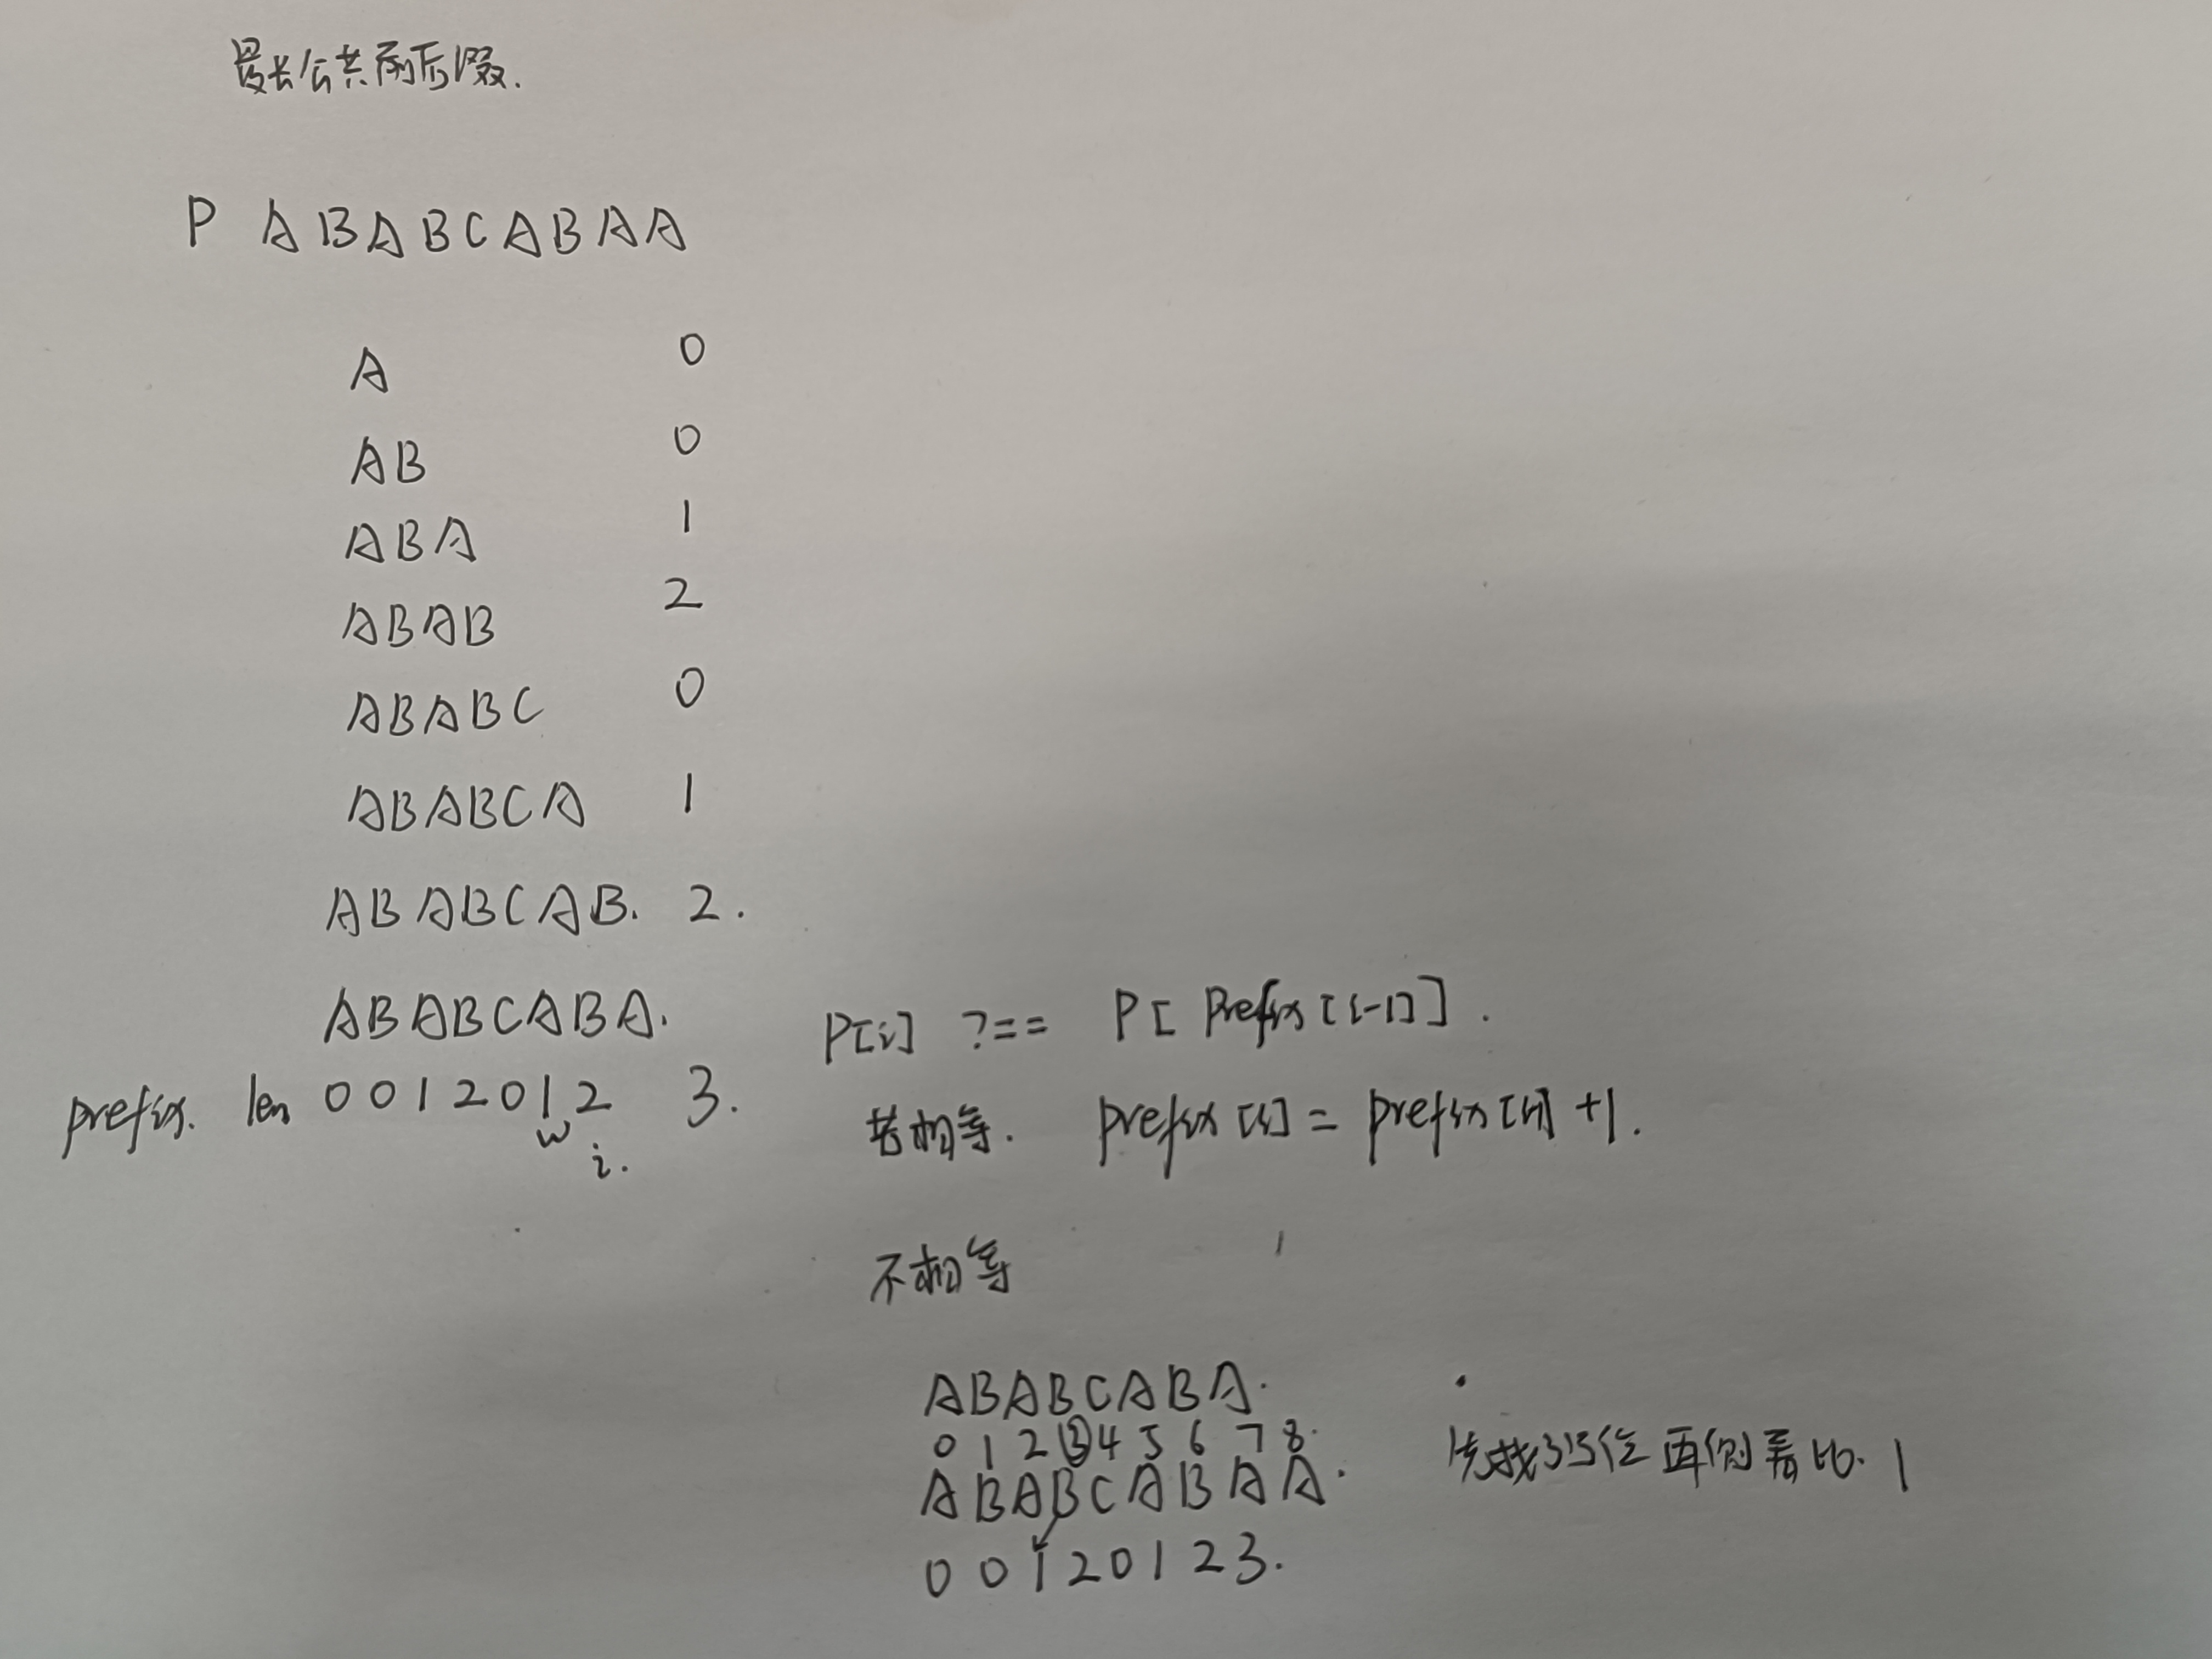 最长公共前后缀.
P A B A B C A B A A
A 0
AB 0
ABA 1
ABAB 2
ABABC 0
ABABCA 1
ABABCAB. 2.
ABABCABA.
prefix. len 0 0 1 2 0 1 2 3.
w
i.
P[i] ?== P[Prefix[i-1]].
若相等. prefix[i] = prefix[i-1] +1.
不相等
ABABCABA.
0 1 2 3 4 5 6 7 8.
ABABCABAA.
0 0 1 2 0 1 2 3.
先找 再 比. 1